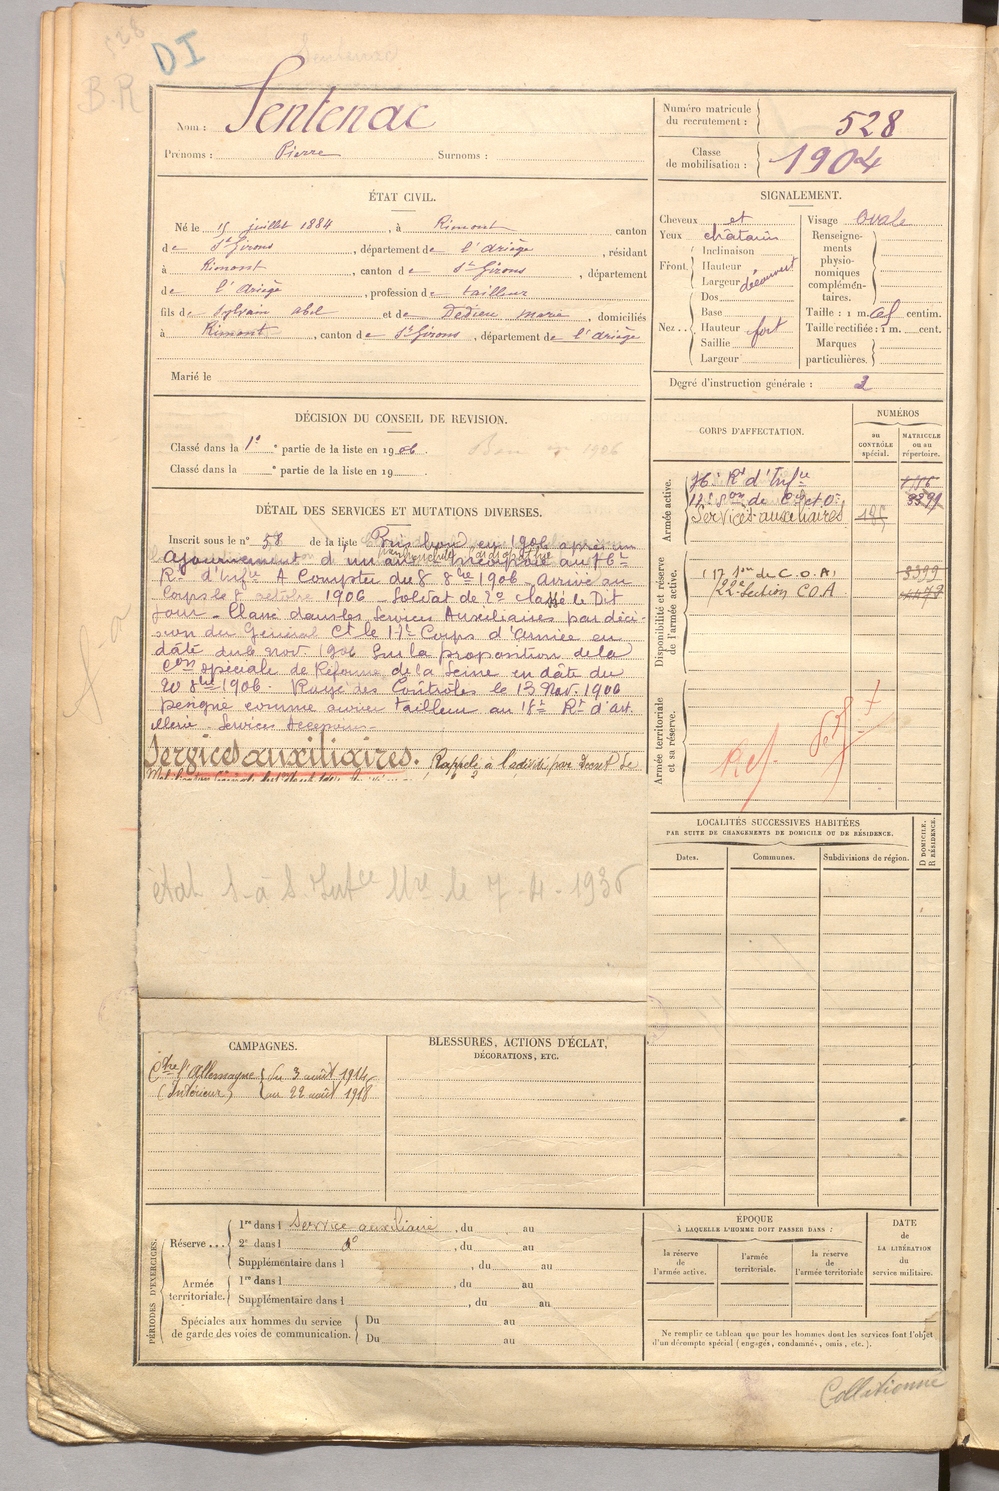 DI
B.R
Nom : Sentenac
Prénoms : Pierre Surnoms :
Numéro matricule du recrutement : 528
Classe de mobilisation : 1904
ÉTAT CIVIL.
Né le 15 juillet 1884, à Rimont canton
de St Girons, département de l'Ariège, résidant
à Rimont, canton de St Girons, département
de l'Ariège, profession de tailleur
fils de Sylvain Abel et de Dedieu Marie, domiciliés
à Rimont, canton de St Girons, département de l'Ariège
Marié le
SIGNALEMENT.
Cheveux et
Yeux châtain
Front. Inclinaison
Hauteur
Largeur découvert
Nez.. Dos
Base
Hauteur fort
Saillie
Largeur
Visage Ovale
Renseignements physionomiques complémentaires.
Taille : 1 m. 61 centim.
Taille rectifiée : 1 m. cent.
Marques particulières.
Degré d'instruction générale : 2
DÉCISION DU CONSEIL DE REVISION.
Classé dans la 1e partie de la liste en 1906.
Classé dans la ° partie de la liste en 19
Bon 1906
CORPS D'AFFECTATION.
NUMÉROS
au CONTRÔLE spécial.
MATRICULE ou au répertoire.
Armée active.
76e Rt d'Infie
Services auxiliaires
Disponibilité et réserve de l'armée active.
17 Son de C.O.A. 8399
22e Section C.O.A
Armée territoriale et sa réserve.
Ref
DÉTAIL DES SERVICES ET MUTATIONS DIVERSES.
Inscrit sous le n° 58 de la liste Pris bon en 1906 après un
Ajournement d'un an Incorporé au 76e
Rt d'Infie A Compter du 8 8bre 1906. Arrivé au
Corps le 8 octobre 1906. Soldat de 2e classe le Dit
jour. Classé dans les Services Auxiliaires par déci-
sion du Général Ct le 17e Corps d'Armée en
date du 6 nov. 1906 Sur la proposition de la
Con spéciale de Réforme de la Seine en date du
20 8bre 1906. Rayé des Contrôles le 13 Nov. 1906
Désigné comme ouvrier tailleur au 18e Rt d'art
illerie. Services Auxiliaires.
Services auxiliaires. Rappelé à l'activité par Décret de
état S à S Intce Mre le 7-4-1936
LOCALITÉS SUCCESSIVES HABITÉES
PAR SUITE DE CHANGEMENTS DE DOMICILE OU DE RÉSIDENCE.
Dates. Communes. Subdivisions de région. D DOMICILE. R RÉSIDENCE.
CAMPAGNES.
Ctre l'Allemagne du 3 août 1914
(Intérieur) au 22 août 1918
BLESSURES, ACTIONS D'ÉCLAT,
DÉCORATIONS, ETC.
PÉRIODES D'EXERCICES.
Réserve... 1re dans l Service auxiliaire, du au
2e dans l do, du au
Supplémentaire dans l, du au
Armée territoriale. 1re dans l, du au
Supplémentaire dans l, du au
Spéciales aux hommes du service de garde des voies de communication.
Du au
Du au
ÉPOQUE
À LAQUELLE L'HOMME DOIT PASSER DANS :
la réserve de l'armée active.
l'armée territoriale.
la réserve de l'armée territoriale
DATE
de
LA LIBÉRATION
du
service militaire.
Ne remplir ce tableau que pour les hommes dont les services font l'objet
d'un décompte spécial (engagés, condamnés, omis, etc.).
Collationné